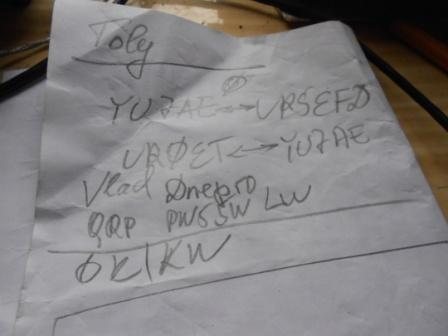 Toly
YU7AE ↔ UR5EFD
UR0ET ↔ YU7AE
Vlad Dnepro
QRP PWS 5W LW
OK1KW